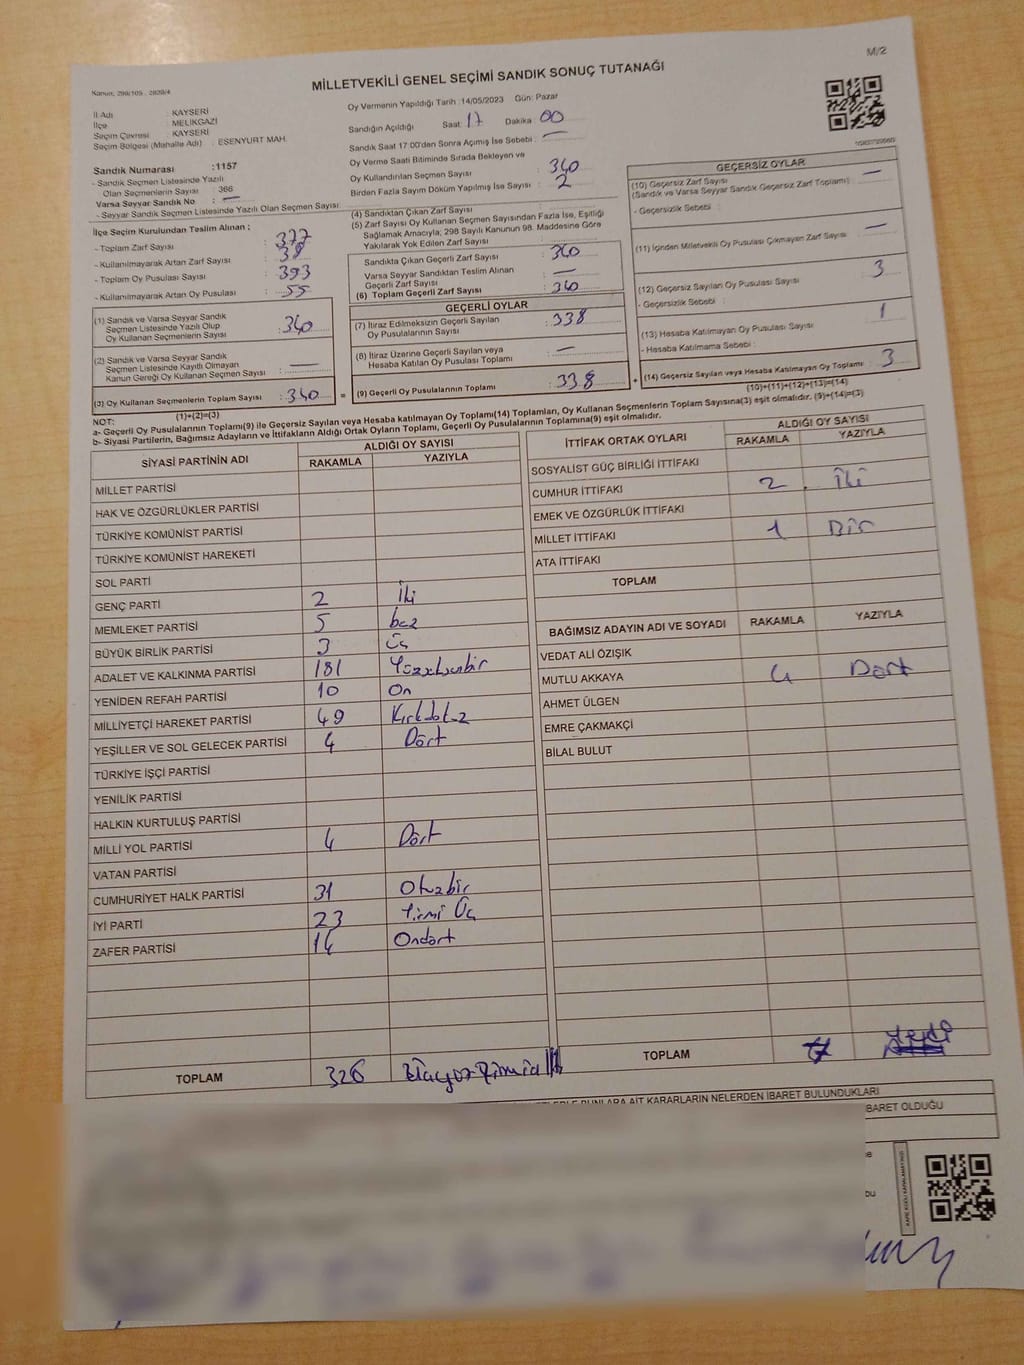 M/2
MİLLETVEKİLİ GENEL SEÇİMİ SANDIK SONUÇ TUTANAĞI
İl Adı : KAYSERİ
İlçe : MELİKGAZİ
Seçim Çevresi : KAYSERİ
Seçim Bölgesi (Mahalle Adı) : ESENYURT MAH.
Sandık Numarası : 1157
- Sandık Seçmen Listesinde Yazılı
Olan Seçmenlerin Sayısı : 366
Varsa Seyyar Sandık No : —
- Seyyar Sandık Seçmen Listesinde Yazılı Olan Seçmen Sayısı:
Oy Vermenin Yapıldığı Tarih :14/05/2023 Gün: Pazar
Sandığın Açıldığı Saat : 17 Dakika : 00
Sandık Saat 17:00'den Sonra Açımış İse Sebebi : —
Oy Verme Saati Bitiminde Sırada Bekleyen ve
Oy Kullandırılan Seçmen Sayısı : 340
Birden Fazla Sayım Döküm Yapılmış İse Sayısı : 2
İlçe Seçim Kurulundan Teslim Alınan ;
- Toplam Zarf Sayısı : 377
- Kullanılmayarak Artan Zarf Sayısı :
- Toplam Oy Pusulası Sayısı : 393
- Kullanılmayarak Artan Oy Pusulası : 55
(1) Sandık ve Varsa Seyyar Sandık
Seçmen Listesinde Yazılı Olup
Oy Kullanan Seçmenlerin Sayısı : 340
(2) Sandık ve Varsa Seyyar Sandık
Seçmen Listesinde Kayıtlı Olmayan
Kanun Gereği Oy Kullanan Seçmen Sayısı : —
(3) Oy Kullanan Seçmenlerin Toplam Sayısı : 340
(1)+(2)=(3)
(4) Sandıktan Çıkan Zarf Sayısı :
(5) Zarf Sayısı Oy Kullanan Seçmen Sayısından Fazla İse, Eşitliği
Sağlamak Amacıyla; 298 Sayılı Kanunun 98. Maddesine Göre
Yakılarak Yok Edilen Zarf Sayısı :
Sandıkta Çıkan Geçerli Zarf Sayısı : 340
Varsa Seyyar Sandıktan Teslim Alınan
Geçerli Zarf Sayısı : —
(6) Toplam Geçerli Zarf Sayısı : 340
GEÇERLİ OYLAR
(7) İtiraz Edilmeksizin Geçerli Sayılan
Oy Pusulalarının Sayısı : 338
(8) İtiraz Üzerine Geçerli Sayılan veya
Hesaba Katılan Oy Pusulası Toplamı : —
= (9) Geçerli Oy Pusulalarının Toplamı : 338
GEÇERSİZ OYLAR
(10) Geçersiz Zarf Sayısı
(Sandık ve Varsa Seyyar Sandık Geçersiz Zarf Toplamı) : —
- Geçersizlik Sebebi :
(11) İçinden Milletvekili Oy Pusulası Çıkmayan Zarf Sayısı : —
(12) Geçersiz Sayılan Oy Pusulası Sayısı : 3
- Geçersizlik Sebebi :
(13) Hesaba Katılmayan Oy Pusulası Sayısı : 1
- Hesaba Katılmama Sebebi :
+ (14) Geçersiz Sayılan veya Hesaba Katılmayan Oy Toplamı : 3
(10)+(11)+(12)+(13)=(14)
NOT:
a- Geçerli Oy Pusulalarının Toplamı(9) ile Geçersiz Sayılan veya Hesaba katılmayan Oy Toplamı(14) Toplamları, Oy Kullanan Seçmenlerin Toplam Sayısına(3) eşit olmalıdır. (9)+(14)=(3)
b- Siyasi Partilerin, Bağımsız Adayların ve İttifakların Aldığı Ortak Oyların Toplamı, Geçerli Oy Pusulalarının Toplamına(9) eşit olmalıdır.
SİYASİ PARTİNİN ADI ALDIĞI OY SAYISI
RAKAMLA YAZIYLA
MİLLET PARTİSİ
HAK VE ÖZGÜRLÜKLER PARTİSİ
TÜRKİYE KOMÜNİST PARTİSİ
TÜRKİYE KOMÜNİST HAREKETİ
SOL PARTİ
GENÇ PARTİ 2 İki
MEMLEKET PARTİSİ 5 beş
BÜYÜK BİRLİK PARTİSİ 3 Üç
ADALET VE KALKINMA PARTİSİ 181 Yüzseksenbir
YENİDEN REFAH PARTİSİ 10 On
MİLLİYETÇİ HAREKET PARTİSİ 49 Kırkdokuz
YEŞİLLER VE SOL GELECEK PARTİSİ 4 Dört
TÜRKİYE İŞÇİ PARTİSİ
YENİLİK PARTİSİ
HALKIN KURTULUŞ PARTİSİ
MİLLİ YOL PARTİSİ 4 Dört
VATAN PARTİSİ
CUMHURİYET HALK PARTİSİ 31 Otuzbir
İYİ PARTİ 23 Yirmi Üç
ZAFER PARTİSİ 14 Ondört
TOPLAM 326
İTTİFAK ORTAK OYLARI ALDIĞI OY SAYISI
RAKAMLA YAZIYLA
SOSYALİST GÜÇ BİRLİĞİ İTTİFAKI
CUMHUR İTTİFAKI 2 İki
EMEK VE ÖZGÜRLÜK İTTİFAKI
MİLLET İTTİFAKI 1 Bir
ATA İTTİFAKI
TOPLAM
BAĞIMSIZ ADAYIN ADI VE SOYADI RAKAMLA YAZIYLA
VEDAT ALİ ÖZIŞIK
MUTLU AKKAYA 4 Dört
AHMET ÜLGEN
EMRE ÇAKMAKÇİ
BİLAL BULUT
TOPLAM
BUNLARA AİT KARARLARIN NELERDEN İBARET BULUNDUKLARI
İBARET OLDUĞU